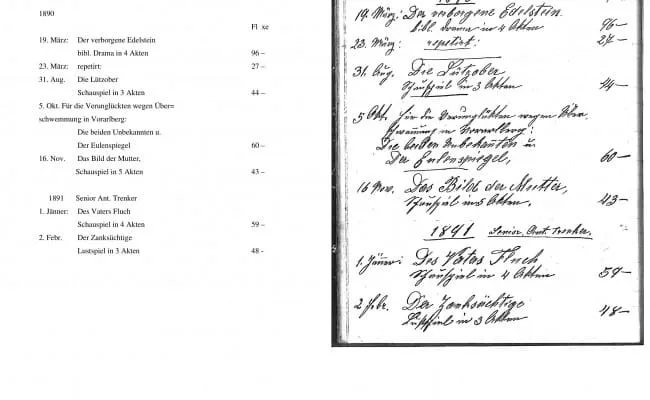 1890
Fl xe
19. März: Der verborgene Edelstein
bibl. Drama in 4 Akten 96 –
23. März: repetirt: 27 –
31. Aug. Die Lützober
Schauspiel in 3 Akten 44 –
5. Okt. Für die Verunglückten wegen Über=
schwemmung in Vorarlberg:
Die beiden Unbekannten u.
Der Eulenspiegel 60 –
16. Nov. Das Bild der Mutter,
Schauspiel in 5 Akten 43 –
1891 Senior Ant. Trenker
1. Jänner: Des Vaters Fluch
Schauspiel in 4 Akten 59 –
2. Febr. Der Zanksüchtige
Lustspiel in 3 Akten 48 -
19. März: Der verborgene Edelstein.
bibl. Drama in 4 Akten 96–
23. März: repetirt: 27–
31. Aug. Die Lützober
Schauspiel in 3 Akten 44–
5 Okt. Für die Verunglükten wegen Über-
schwemmung in Vorarlberg:
Die beiden Unbekannten u.
Der Eulenspiegel, 60–
16 Nov. Das Bild der Mutter,
Schauspiel in 5 Akten. 43–
1891 Senior Ant. Trenker.
1. Jänner: Des Vaters Fluch
Schauspiel in 4 Akten 59–
2 Febr. Der Zanksüchtige
Lustspiel in 3 Akten 48–